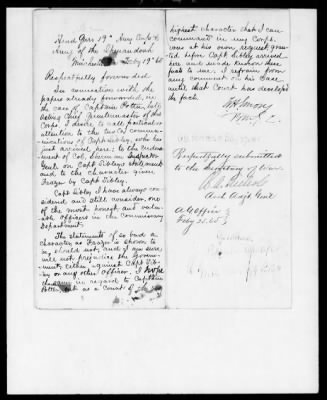 Head Qurs 19th Army Corps &
Army of the Shenandoah
Winchester Feby 19th 65
Respectfully forwarded
In connection with the
paper already forwarded, in
the case of Captain Potter, late
Acting Chief Quartermaster of this
Corps, I desire to call particular
attention to the two communi-
cations of Capt Sibley, who has
just arrived here; to the endorse-
ment of Col. Inspector
Genl. on Capt Sibley's statement
and to the character given
Frazer by Capt Sibley.
Capt Sibley I have always con-
sidered and still consider, one
of the most honest, and valua-
ble officers in the Commissary
Department.
The statements of so bad a
character as Frazer is shown to
be, should not, and I am sure,
will not prejudice the Govern-
ment, either against Capt Sib-
ley or any other officer. I
in regard to Captain
Potter, as a Court of
highest character that I can
command in my Corps
was at his own request grant-
ed before Capt Sibley arrived
here and made known these
facts to me. I refrain from
any comment on his case
until that Court has developed
the facts.
W H Emory
Respectfully submitted
to the Secretary of War
Asst Adjt Genl
A G Office
Feby 25. 65